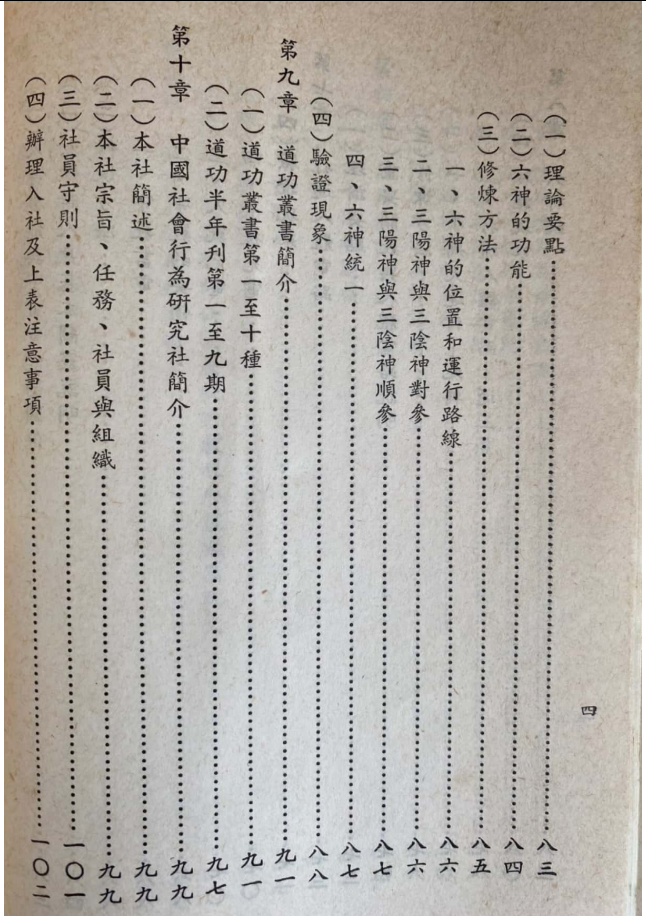 四
（一）理論要點……八三
（二）六神的功能……八四
（三）修煉方法……八五
一、六神的位置和運行路線……八六
二、三陽神與三陰神對參……八六
三、三陽神與三陰神順參……八七
四、六神統一……八七
（四）驗證現象……八八
第九章　道功叢書簡介……九一
（一）道功叢書第一至十種……九一
（二）道功半年刊第一至九期……九七
第十章　中國社會行為研究社簡介……九九
（一）本社簡述……九九
（二）本社宗旨、任務、社員與組織……九九
（三）社員守則……一〇一
（四）辦理入社及上表注意事項……一〇二